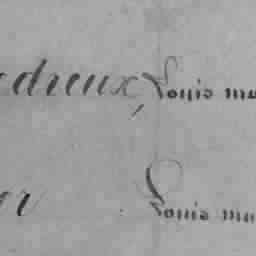 edreux, Louis ma
er Louis ma